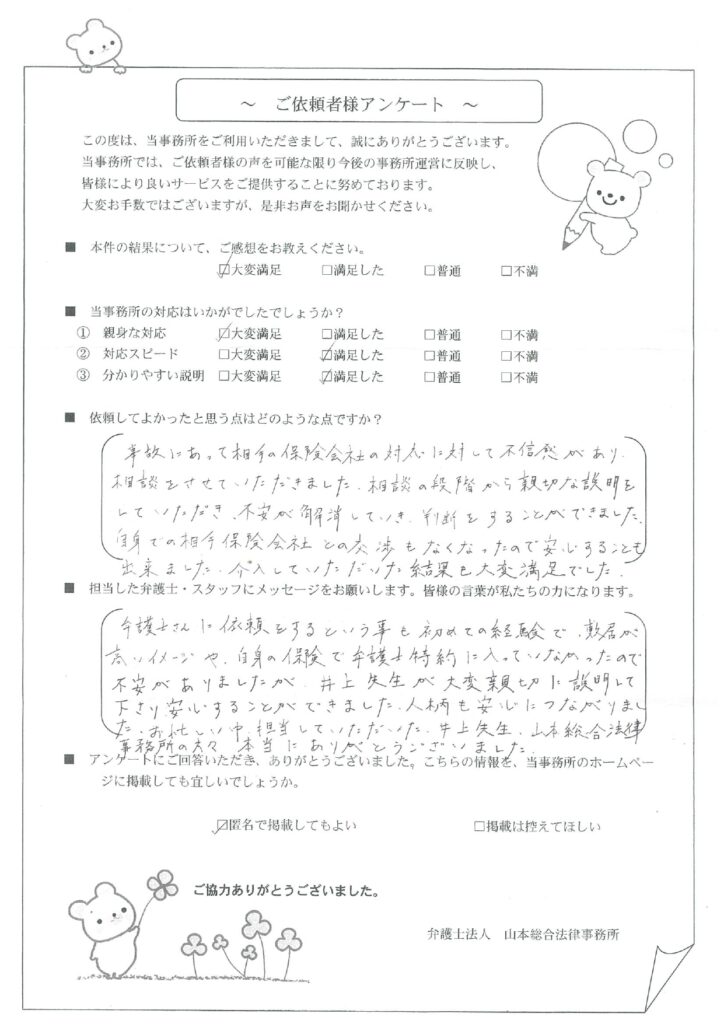 ～　ご依頼者様アンケート　～
この度は、当事務所をご利用いただきまして、誠にありがとうございます。
当事務所では、ご依頼者様の声を可能な限り今後の事務所運営に反映し、
皆様により良いサービスをご提供することに努めております。
大変お手数ではございますが、是非お声をお聞かせください。
■　本件の結果について、ご感想をお教えください。
☑大変満足　□満足した　□普通　□不満
■　当事務所の対応はいかがでしたでしょうか？
①　親身な対応　☑大変満足　□満足した　□普通　□不満
②　対応スピード　□大変満足　☑満足した　□普通　□不満
③　分かりやすい説明　□大変満足　☑満足した　□普通　□不満
■　依頼してよかったと思う点はどのような点ですか？
事故にあって相手の保険会社の対応に対して不信感があり、
相談をさせていただきました。相談の段階から親切な説明を
していただき、不安が解消していき、判断をすることができました。
自身での相手保険会社との交渉もなくなったので安心することも
出来ました。介入していただいた結果も大変満足でした。
■　担当した弁護士・スタッフにメッセージをお願いします。皆様の言葉が私たちの力になります。
弁護士さんに依頼をするという事も初めての経験で、敷居が
高いイメージや、自身の保険で弁護士特約に入っていなかったので
不安がありましたが、井上先生が大変親切に説明して
下さり安心することができました。人柄も安心につながりまし
た。お忙しい中担当していただいた、井上先生、山本総合法律
事務所の方々、本当にありがとうございました。
■　アンケートにご回答いただき、ありがとうございました。こちらの情報を、当事務所のホームペー
ジに掲載しても宜しいでしょうか。
☑匿名で掲載してもよい　□掲載は控えてほしい
ご協力ありがとうございました。
弁護士法人　山本総合法律事務所